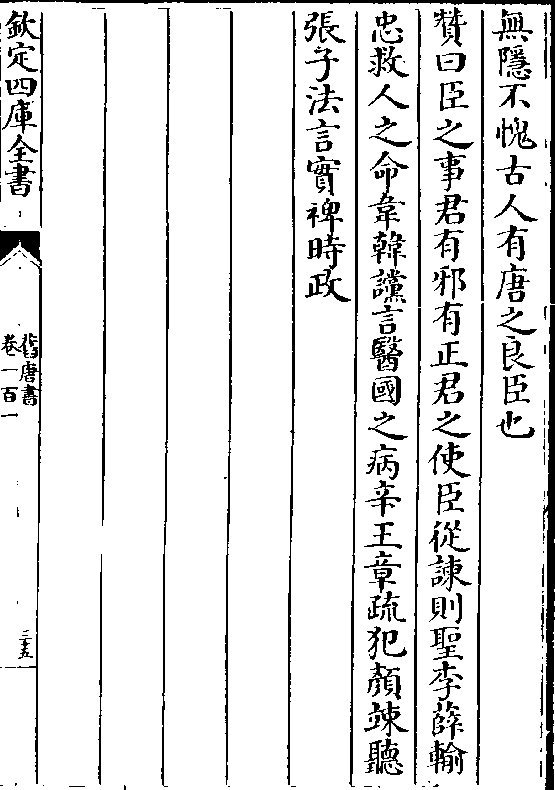 無隱不愧古人有唐之良臣也
贊曰臣之事君有邪有正君之使臣從諫則聖李薛輸
忠救人之命韋韓讜言醫國之病辛王章疏犯顏竦聽
張子法言實裨時政
欽定四庫全書
舊唐書
卷一百一
三五